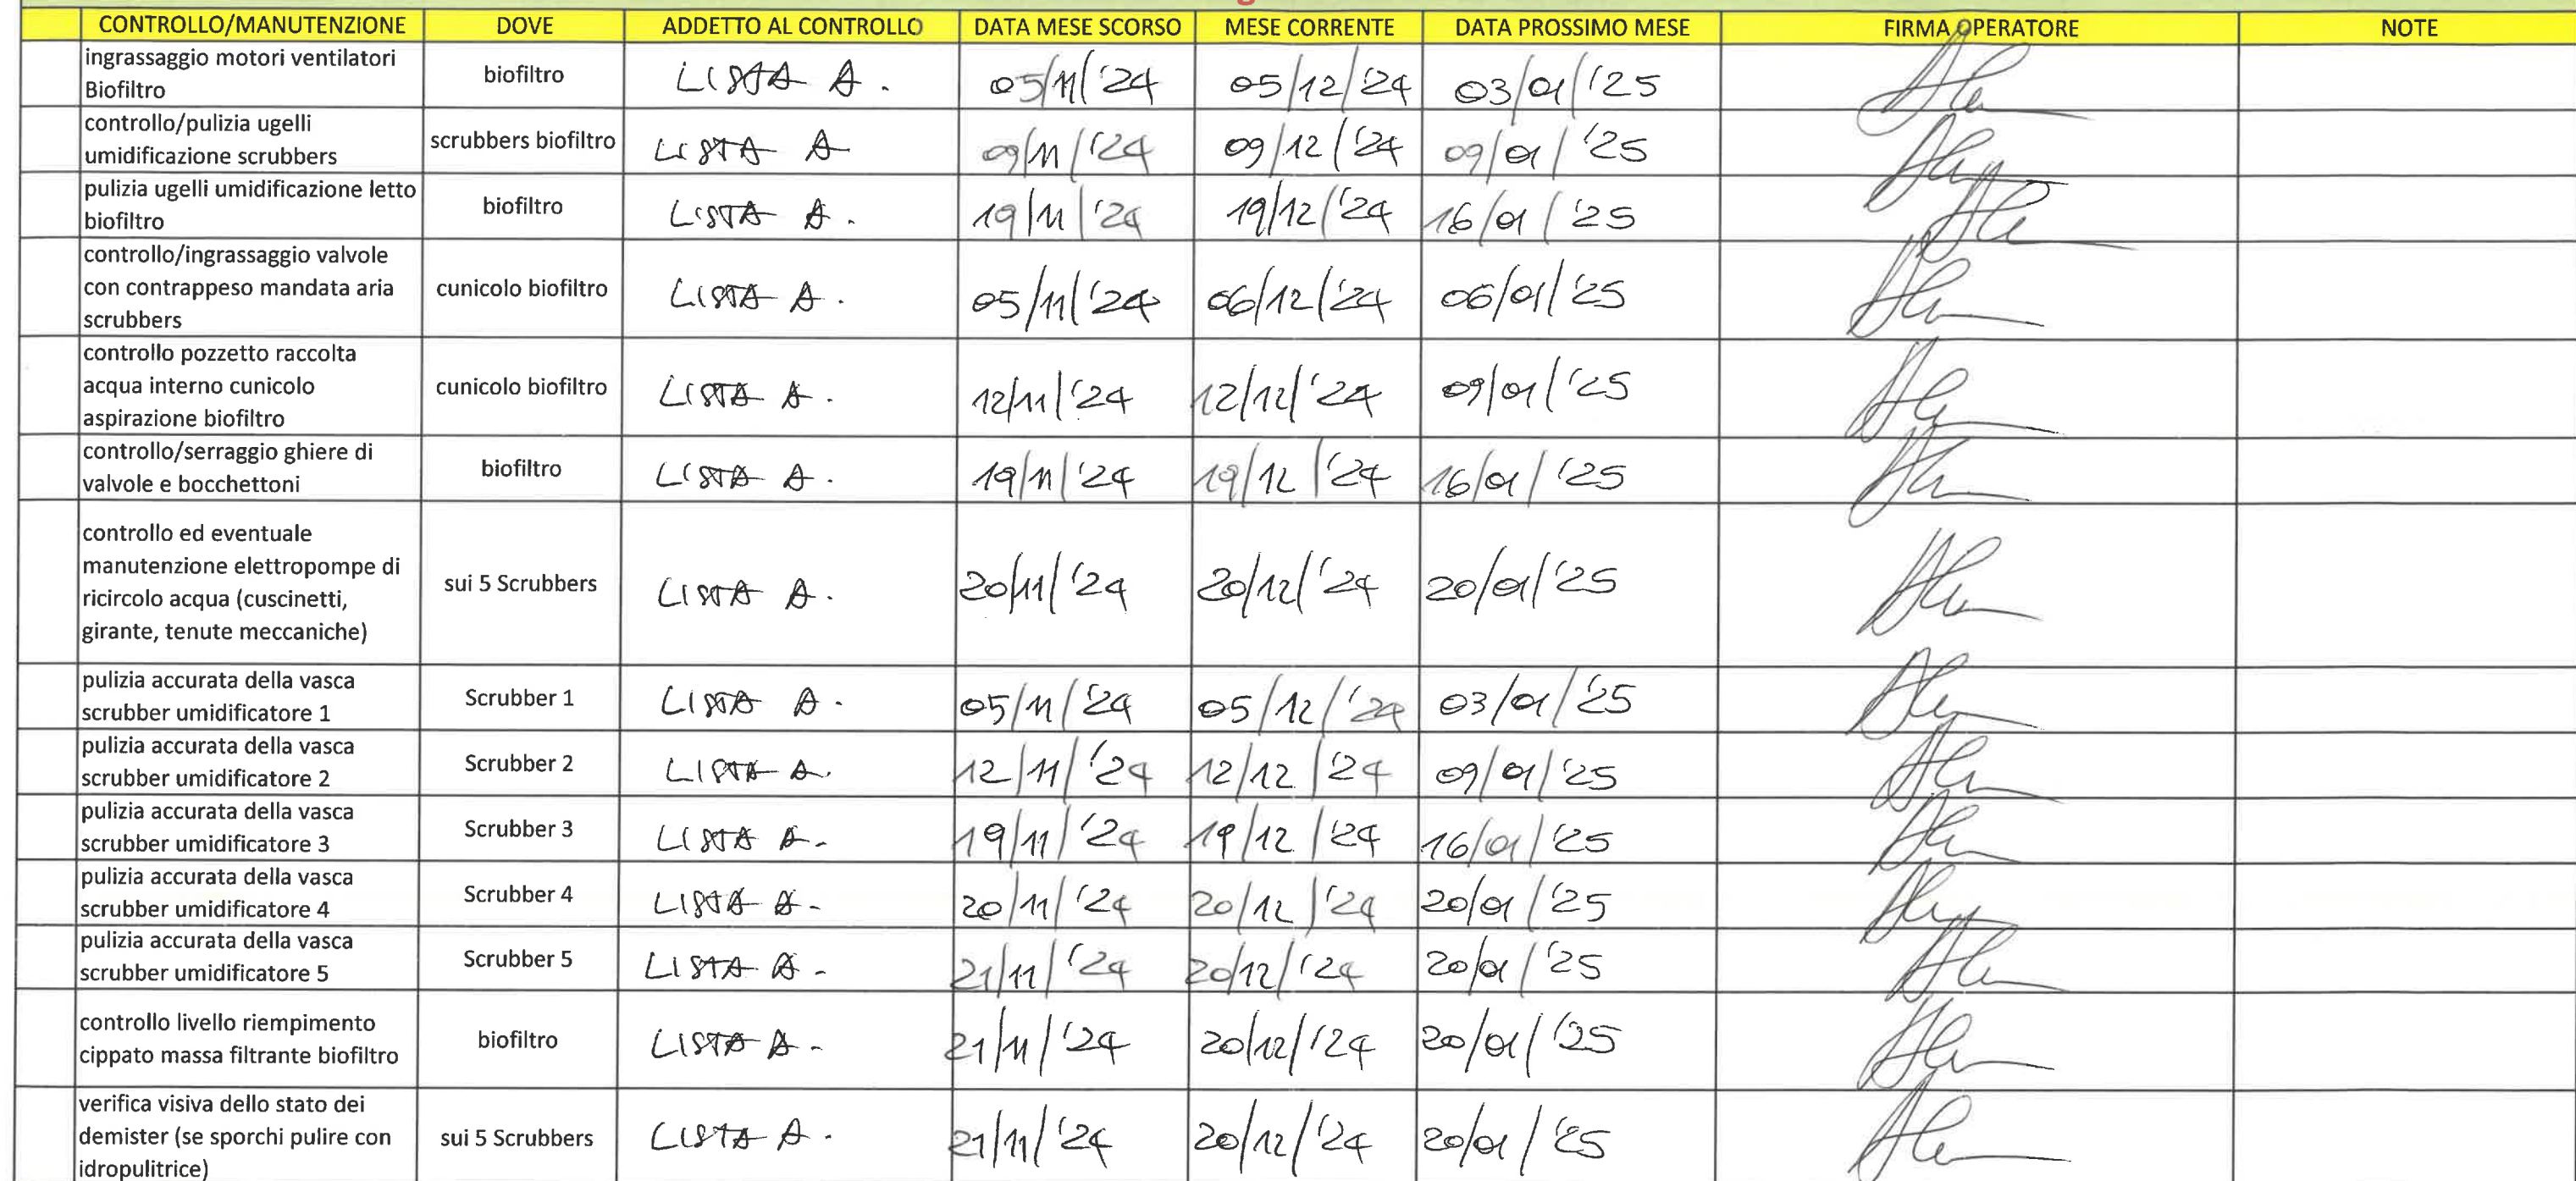 CONTROLLO/MANUTENZIONE DOVE ADDETTO AL CONTROLLO DATA MESE SCORSO MESE CORRENTE DATA PROSSIMO MESE FIRMA OPERATORE NOTE
ingrassaggio motori ventilatori
Biofiltro
biofiltro LISTA A. 05/11/'24 05/12/'24 03/01/'25
controllo/pulizia ugelli
umidificazione scrubbers
scrubbers biofiltro LISTA A 09/11/'24 09/12/'24 09/01/'25
pulizia ugelli umidificazione letto
biofiltro
biofiltro LISTA A. 19/11/'24 19/12/'24 16/01/'25
controllo/ingrassaggio valvole
con contrappeso mandata aria
scrubbers
cunicolo biofiltro LISTA A. 05/11/'24 06/12/'24 06/01/'25
controllo pozzetto raccolta
acqua interno cunicolo
aspirazione biofiltro
cunicolo biofiltro LISTA A. 12/11/'24 12/12/'24 09/01/'25
controllo/serraggio ghiere di
valvole e bocchettoni
biofiltro LISTA A. 19/11/'24 19/12/'24 16/01/'25
controllo ed eventuale
manutenzione elettropompe di
ricircolo acqua (cuscinetti,
girante, tenute meccaniche)
sui 5 Scrubbers LISTA A. 20/11/'24 20/12/'24 20/01/'25
pulizia accurata della vasca
scrubber umidificatore 1
Scrubber 1 LISTA A. 05/11/'24 05/12/'24 03/01/'25
pulizia accurata della vasca
scrubber umidificatore 2
Scrubber 2 LISTA A. 12/11/'24 12/12/'24 09/01/'25
pulizia accurata della vasca
scrubber umidificatore 3
Scrubber 3 LISTA A. 19/11/'24 19/12/'24 16/01/'25
pulizia accurata della vasca
scrubber umidificatore 4
Scrubber 4 LISTA A. 20/11/'24 20/12/'24 20/01/'25
pulizia accurata della vasca
scrubber umidificatore 5
Scrubber 5 LISTA A. 21/11/'24 20/12/'24 20/01/'25
controllo livello riempimento
cippato massa filtrante biofiltro
biofiltro LISTA A. 21/11/'24 20/12/'24 20/01/'25
verifica visiva dello stato dei
demister (se sporchi pulire con
idropulitrice)
sui 5 Scrubbers LISTA A. 21/11/'24 20/12/'24 20/01/'25